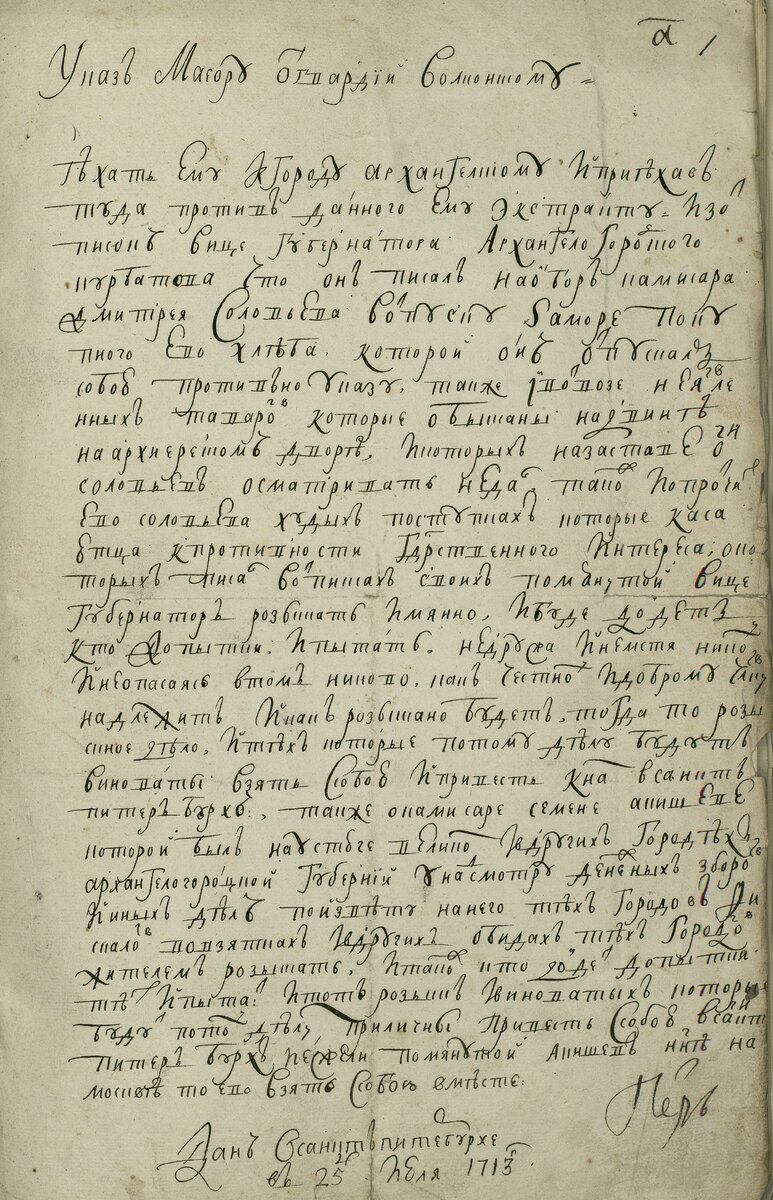 а 1
Указъ Маеору отгвардїи волконскому
ѣхать ему кгороду архангелскому и приѣхавъ
туда противъ данного ему экстракту изо
писемъ вице губернатора архангелогороцкого
курбатова что онъ писалъ на обор камисара
дмитрея соловьева во отпуску заморе поку
пного ево хлѣба, которой онъ отпускалъ
собою противъно указу, также і о повозе неявле
нныхъ таваровъ которые обысканы на двинѣ
на архиерейскомъ дворѣ, и которыхъ на заставе ево
соловьевъ осматривать не далъ, також и о протчихъ
ево соловьева худыхъ поступкахъ которые каса
ютца кпротивности гдрственного интереса, о ко
торыхъ писалъ во писмахъ своихъ помянутой вице
губернаторъ розыскать имянно, и буде доидетъ
кто допытки, и пытать, не друха и не мстя никому
и не опасаясь втомъ никово, какъ честному и доброму члвку
надлежитъ и какъ розыскано будетъ, тогда то розы
скное дѣло, и тѣхъ которые потому дѣлу будутъ
виноваты взять ссобою и привесть кнам всанктъ
питеръбурхъ, также о камисаре семене акишеве
которой былъ на устюге велико и вдругихъ городѣхъ
архангелогороцкой губернїи у насмотру денежныхъ зборовъ
и иныхъ дѣлъ по извѣту на него тѣхъ городовъ
скаловъ во взяткахъ и вдругихъ обидахъ тѣхъ городовъ
жителемъ розыскать, и також кто доидетъ допытки
и пытать и тотъ розыскъ и виноватыхъ которые
будутъ потому дѣлу приличны привесть ссобою всанктъ
питеръ бурхъ, ежели помянутой акишевъ ннѣ на
москвѣ то ево взять ссобою вмѣсте
Петръ
Данъ всанктъпитербурхе
въ 25 д июля 1713 г